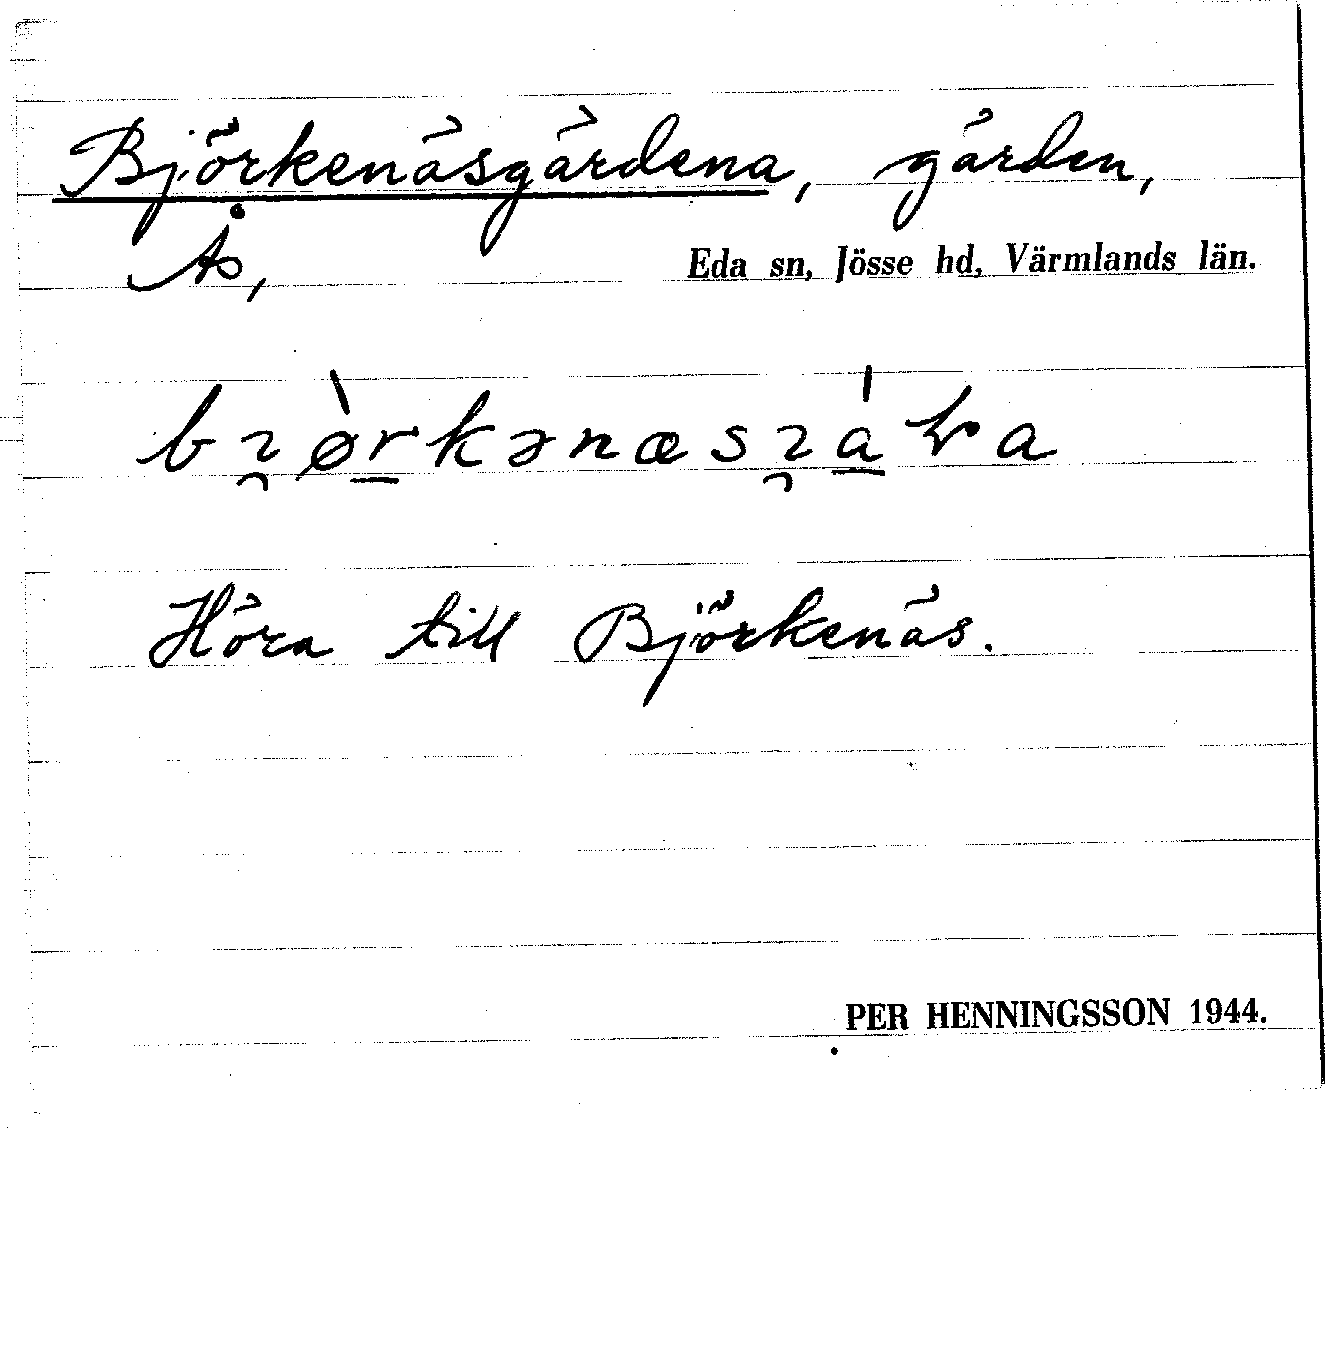 Björkenäsgårdena, gården,
Ås, Eda sn, Jösse hd, Värmlands län.
Höra till Björkenäs.
PER HENNINGSSON 1944.